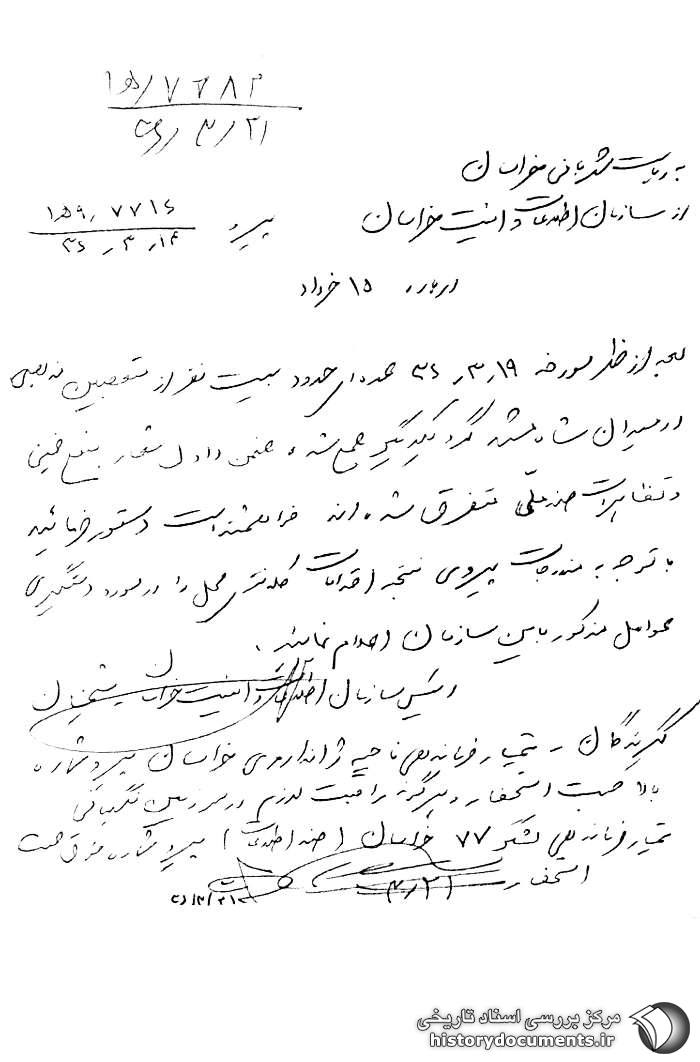 ۱۵ه‍/۷۷۸۳
۳/۲۱
به ریاست شهربانی خراسان
از سازمان اطلاعات و امنیت خراسان
پیرو ۷۷۱۶/۱۵ه‍
۳۶/۳/۱۴
درباره ۱۵ خرداد
بعد از ظهر مورخه ۳۶/۳/۱۹ عده‌ای حدود بیست نفر از متعصبین مذهبی
در میدان شاه مشهد گرد یکدیگر جمع شده و ضمن دادن شعار بنفع خمینی
و تظاهرات ضد ملی متفرق شده‌اند خواهشمند است دستور فرمائید
با توجه به مندرجات پیروی نتیجه اقدامات کلانتری محل را در مورد دستگیری
عوامل مذکور باین سازمان اعلام نمایند.
رئیس سازمان اطلاعات و امنیت خراسان شیخان
گیرندگان - تیمسار فرماندهی ناحیه ژاندارمری خراسان پیرو شماره
بالا جهت استحضار و هرگونه مراقبت لازم در سرزمین نگهبانی
تیمسار فرماندهی لشگر ۷۷ خراسان (ضد اطلاعات) پیرو شماره فوق جهت
استحضار
۳/۲۱
مرکز بررسی اسناد تاریخی
historydocuments.ir